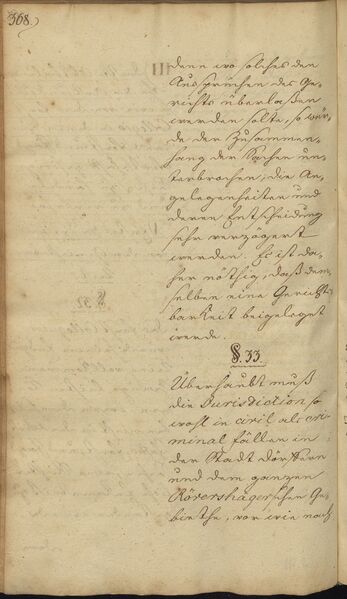 368.)
denn wo solches den
Aussprüchen des Ge-
richts überlaßen
werden solte, so wür-
de der Zusammen-
hang der Sachen un-
terbrochen, die An-
gelegenheiten und
deren Entscheidung
sehr verzögert
werden. Es ist da-
her nöthig, daß dem-
selben eine Gerichts-
barkeit beigeleget
werde.
§. 33.
Überhaubt muß
die Jurisdiction so
wohl in civil als cri-
minal fällen in
der Stadt Dörffern
und dem ganzen
Rövershäger'schen Ge-
biethe, vor wie nach